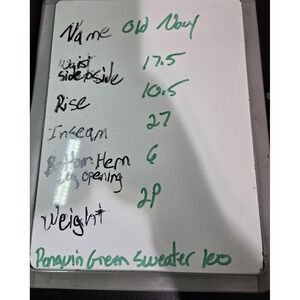 Name Old Navy
Waist side to side 17.5
Rise 10.5
Inseam 27
Bottom Hem 6
Leg opening
Weight 2P
Penguin Green Sweater leo